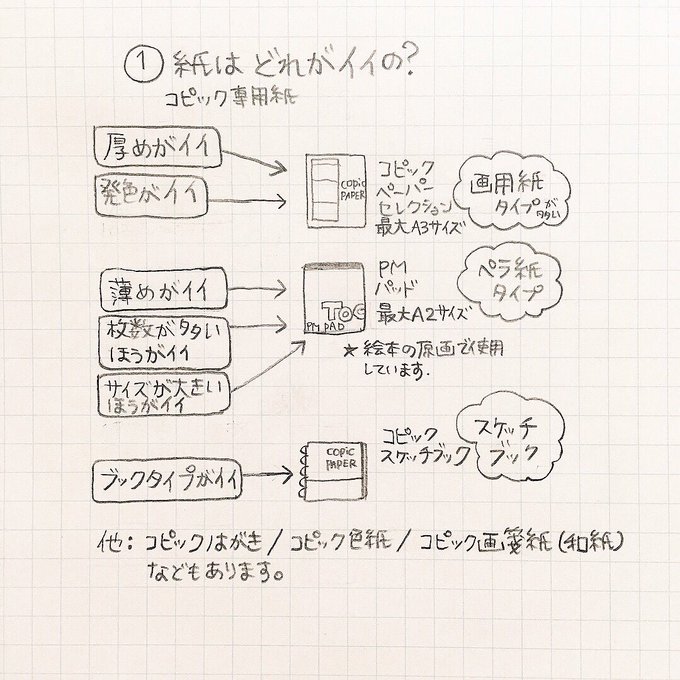 ① 紙は どれがイイの?
コピック専用紙
厚めがイイ
発色がイイ
COPIC
PAPER
コピック
ペーパー
セレクション
最大A3サイズ
画用紙
タイプが
多い
薄めがイイ
枚数が多い
ほうがイイ
サイズが大きい
ほうがイイ
TOO
PM PAD
PM
パッド
最大A2サイズ
★ 絵本の原画で使用
しています.
ペラ紙
タイプ
ブックタイプがイイ
COPIC
PAPER
コピック
スケッチブック
スケッチ
ブック
他: コピックはがき / コピック色紙 / コピック画箋紙(和紙)
などもあります。